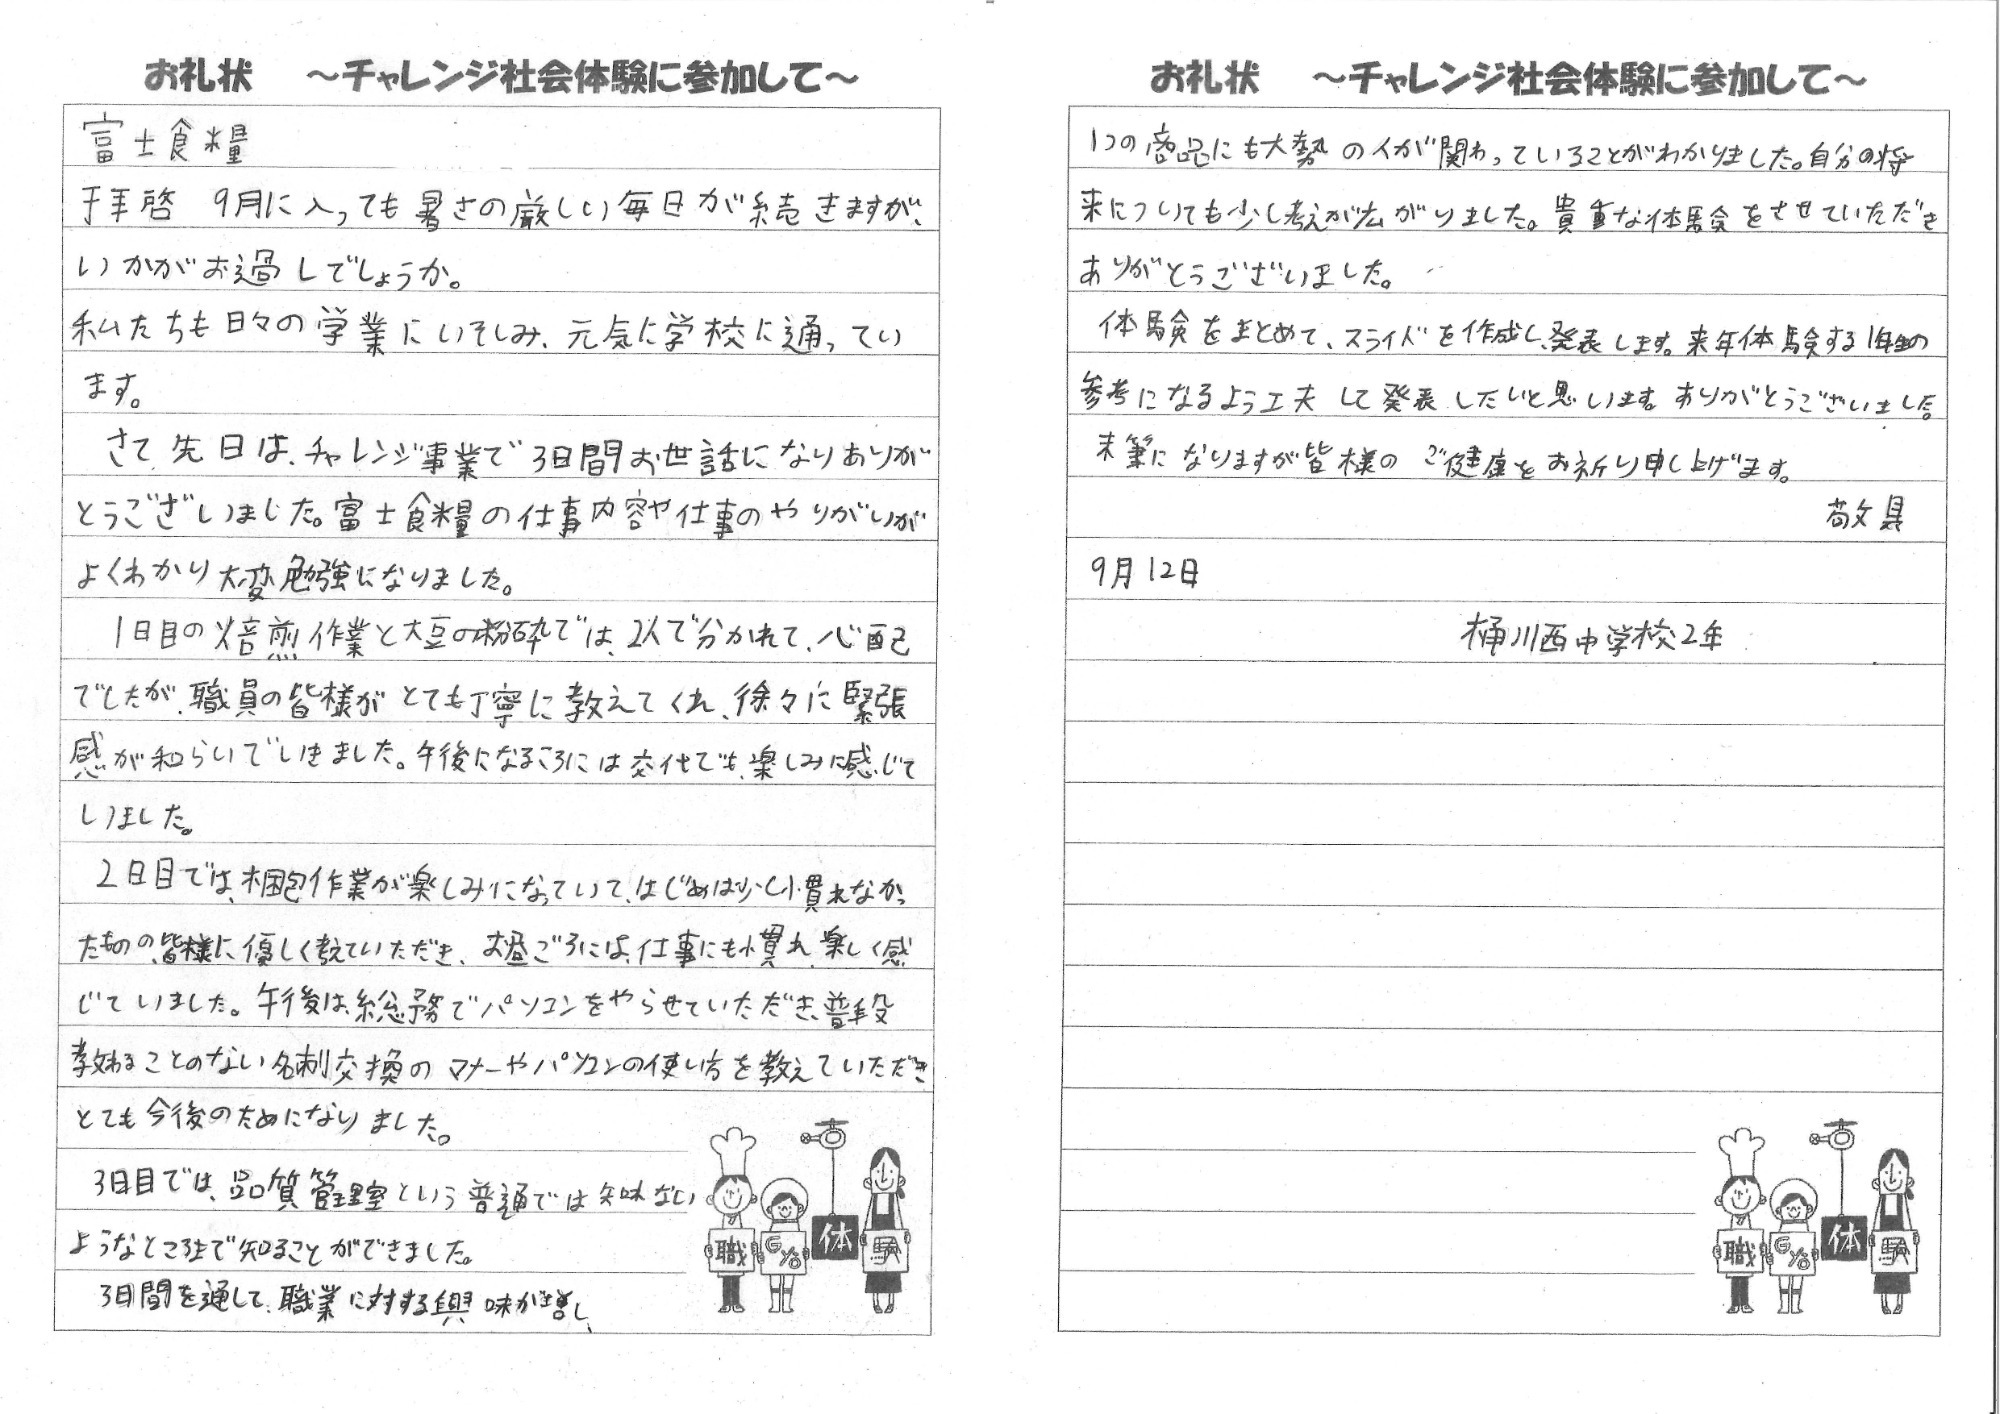 お礼状　～チャレンジ社会体験に参加して～
富士食糧
拝啓　9月に入っても暑さの厳しい毎日が続きますが、
いかがお過しでしょうか。
私たちも日々の学業にいそしみ、元気に学校に通ってい
ます。
さて、先日は、チャレンジ事業で3日間お世話になりありが
とうございました。富士食糧の仕事内容や仕事のやりがいが
よくわかり大変勉強になりました。
1日目の焙煎作業と大豆の粉砕では、2人で分かれて、心配
でしたが、職員の皆様がとても丁寧に教えてくれ、徐々に緊張
感が和らいでいきました。午後になるころには交代でも、楽しみに感じて
いました。
2日目では、梱包作業が楽しみになっていて、はじめは少し慣れなかっ
たものの、皆様に優しく教えていただき、お昼ごろには、仕事にも慣れ、楽しく感
じていました。午後は、総務でパソコンをやらせていただき、普段
教わることのない名刺交換のマナーやパソコンの使い方を教えていただき
とても今後のためになりました。
3日目では、品質管理室という普通では知れない
ようなところまで知ることができました。
3日間を通して、職業に対する興味が増し、
職 GYO 体 験
お礼状　～チャレンジ社会体験に参加して～
1つの商品にも大勢の人が関わっていることがわかりました。自分の将
来についても少し考えが広がりました。貴重な体験をさせていただき
ありがとうございました。
体験をまとめて、スライドを作成し、発表します。来年体験する1年生の
参考になるよう工夫して発表したいと思います。ありがとうございました。
末筆になりますが皆様のご健康をお祈り申し上げます。
敬具
9月12日
桶川西中学校2年
職 GYO 体 験